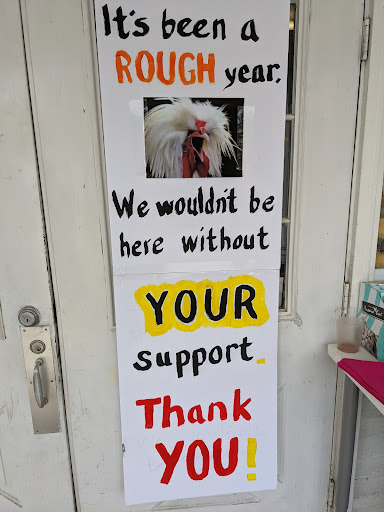 It's been a
ROUGH year.
We wouldn't be
here without
YOUR
support.
Thank
YOU!